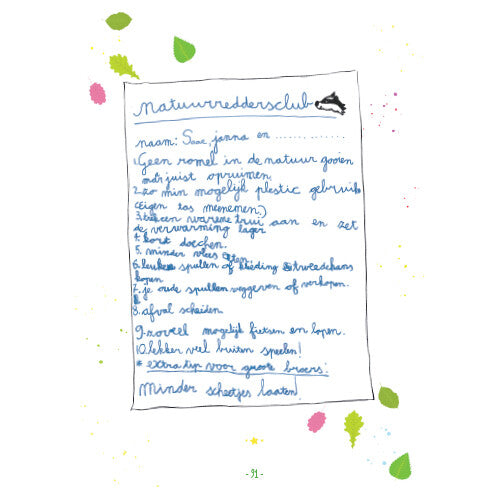 natuurreddersclub
naam: Saar, janna en ...............
1. Geen romel in de natuur gooien
maar juist opruimen
2. zo min mogelijk plestic gebruik
(Eigen tas meenemen.)
3. trekcen warme trui aan en zet
de verwarming lager
4. kort doechen.
5. minder vlees eten.
6. leuke spullen of kleding tweedehans
kopen
7. je oude spullen weggeven of verkopen.
8. afval scheiden
9. zoveel mogelijk fietsen en lopen.
10. lekker veel buiten speelen!
* extra tip voor groote broers:
Minder scheetjes laaten!
- 91 -